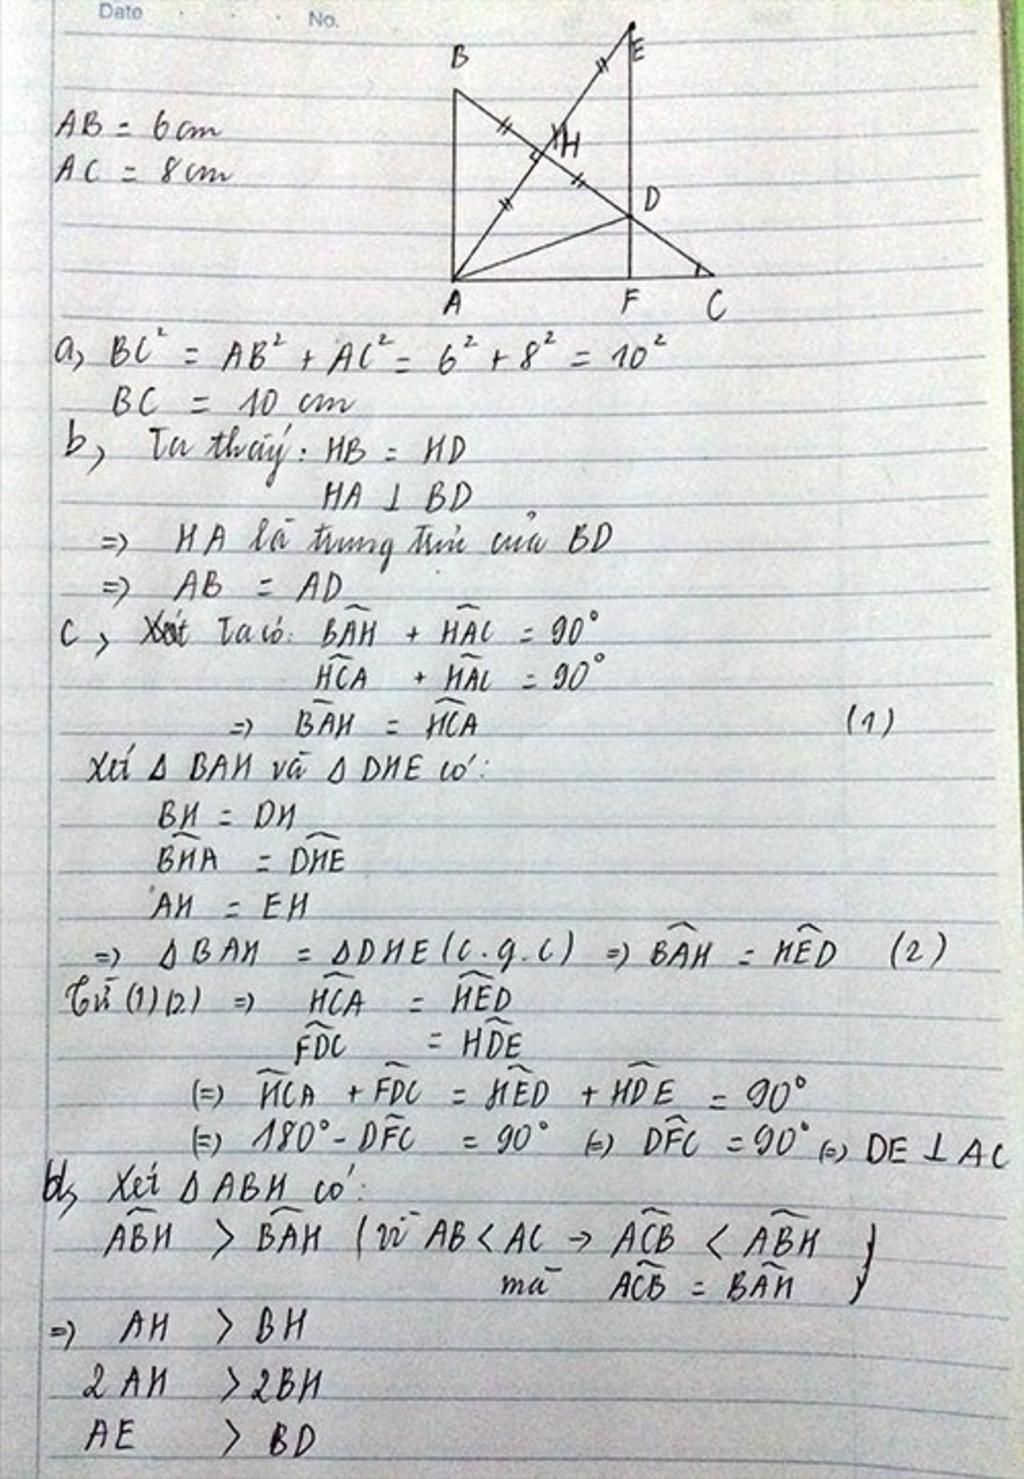 Date No.
B
E
AB = 6cm
AC = 8cm
H
D
A F C
a, BC² = AB² + AC² = 6² + 8² = 10²
BC = 10 cm
b, Ta thấy: HB = HD
HA ⊥ BD
=> HA là trung trực của BD
=> AB = AD
c, Xét Ta có: BAH^ + HAC^ = 90°
HCA^ + HAC^ = 90°
=> BAH^ = HCA^ (1)
Xét Δ BAH và Δ DHE có:
BH = DH
BHA^ = DHE^
AH = EH
=> Δ BAH = Δ DHE (c.g.c) => BAH^ = HED^ (2)
Từ (1)(2) => HCA^ = HED^
FDC^ = HDE^
(=) HCA^ + FDC^ = HED^ + HDE^ = 90°
(=) 180° - DFC^ = 90° (=) DFC^ = 90° (=) DE ⊥ AC
d, Xét Δ ABH có:
ABH^ > BAH^ (vì AB < AC → ACB^ < ABH^
mà ACB^ = BAH^ )
=> AH > BH
2AH > 2BH
AE > BD